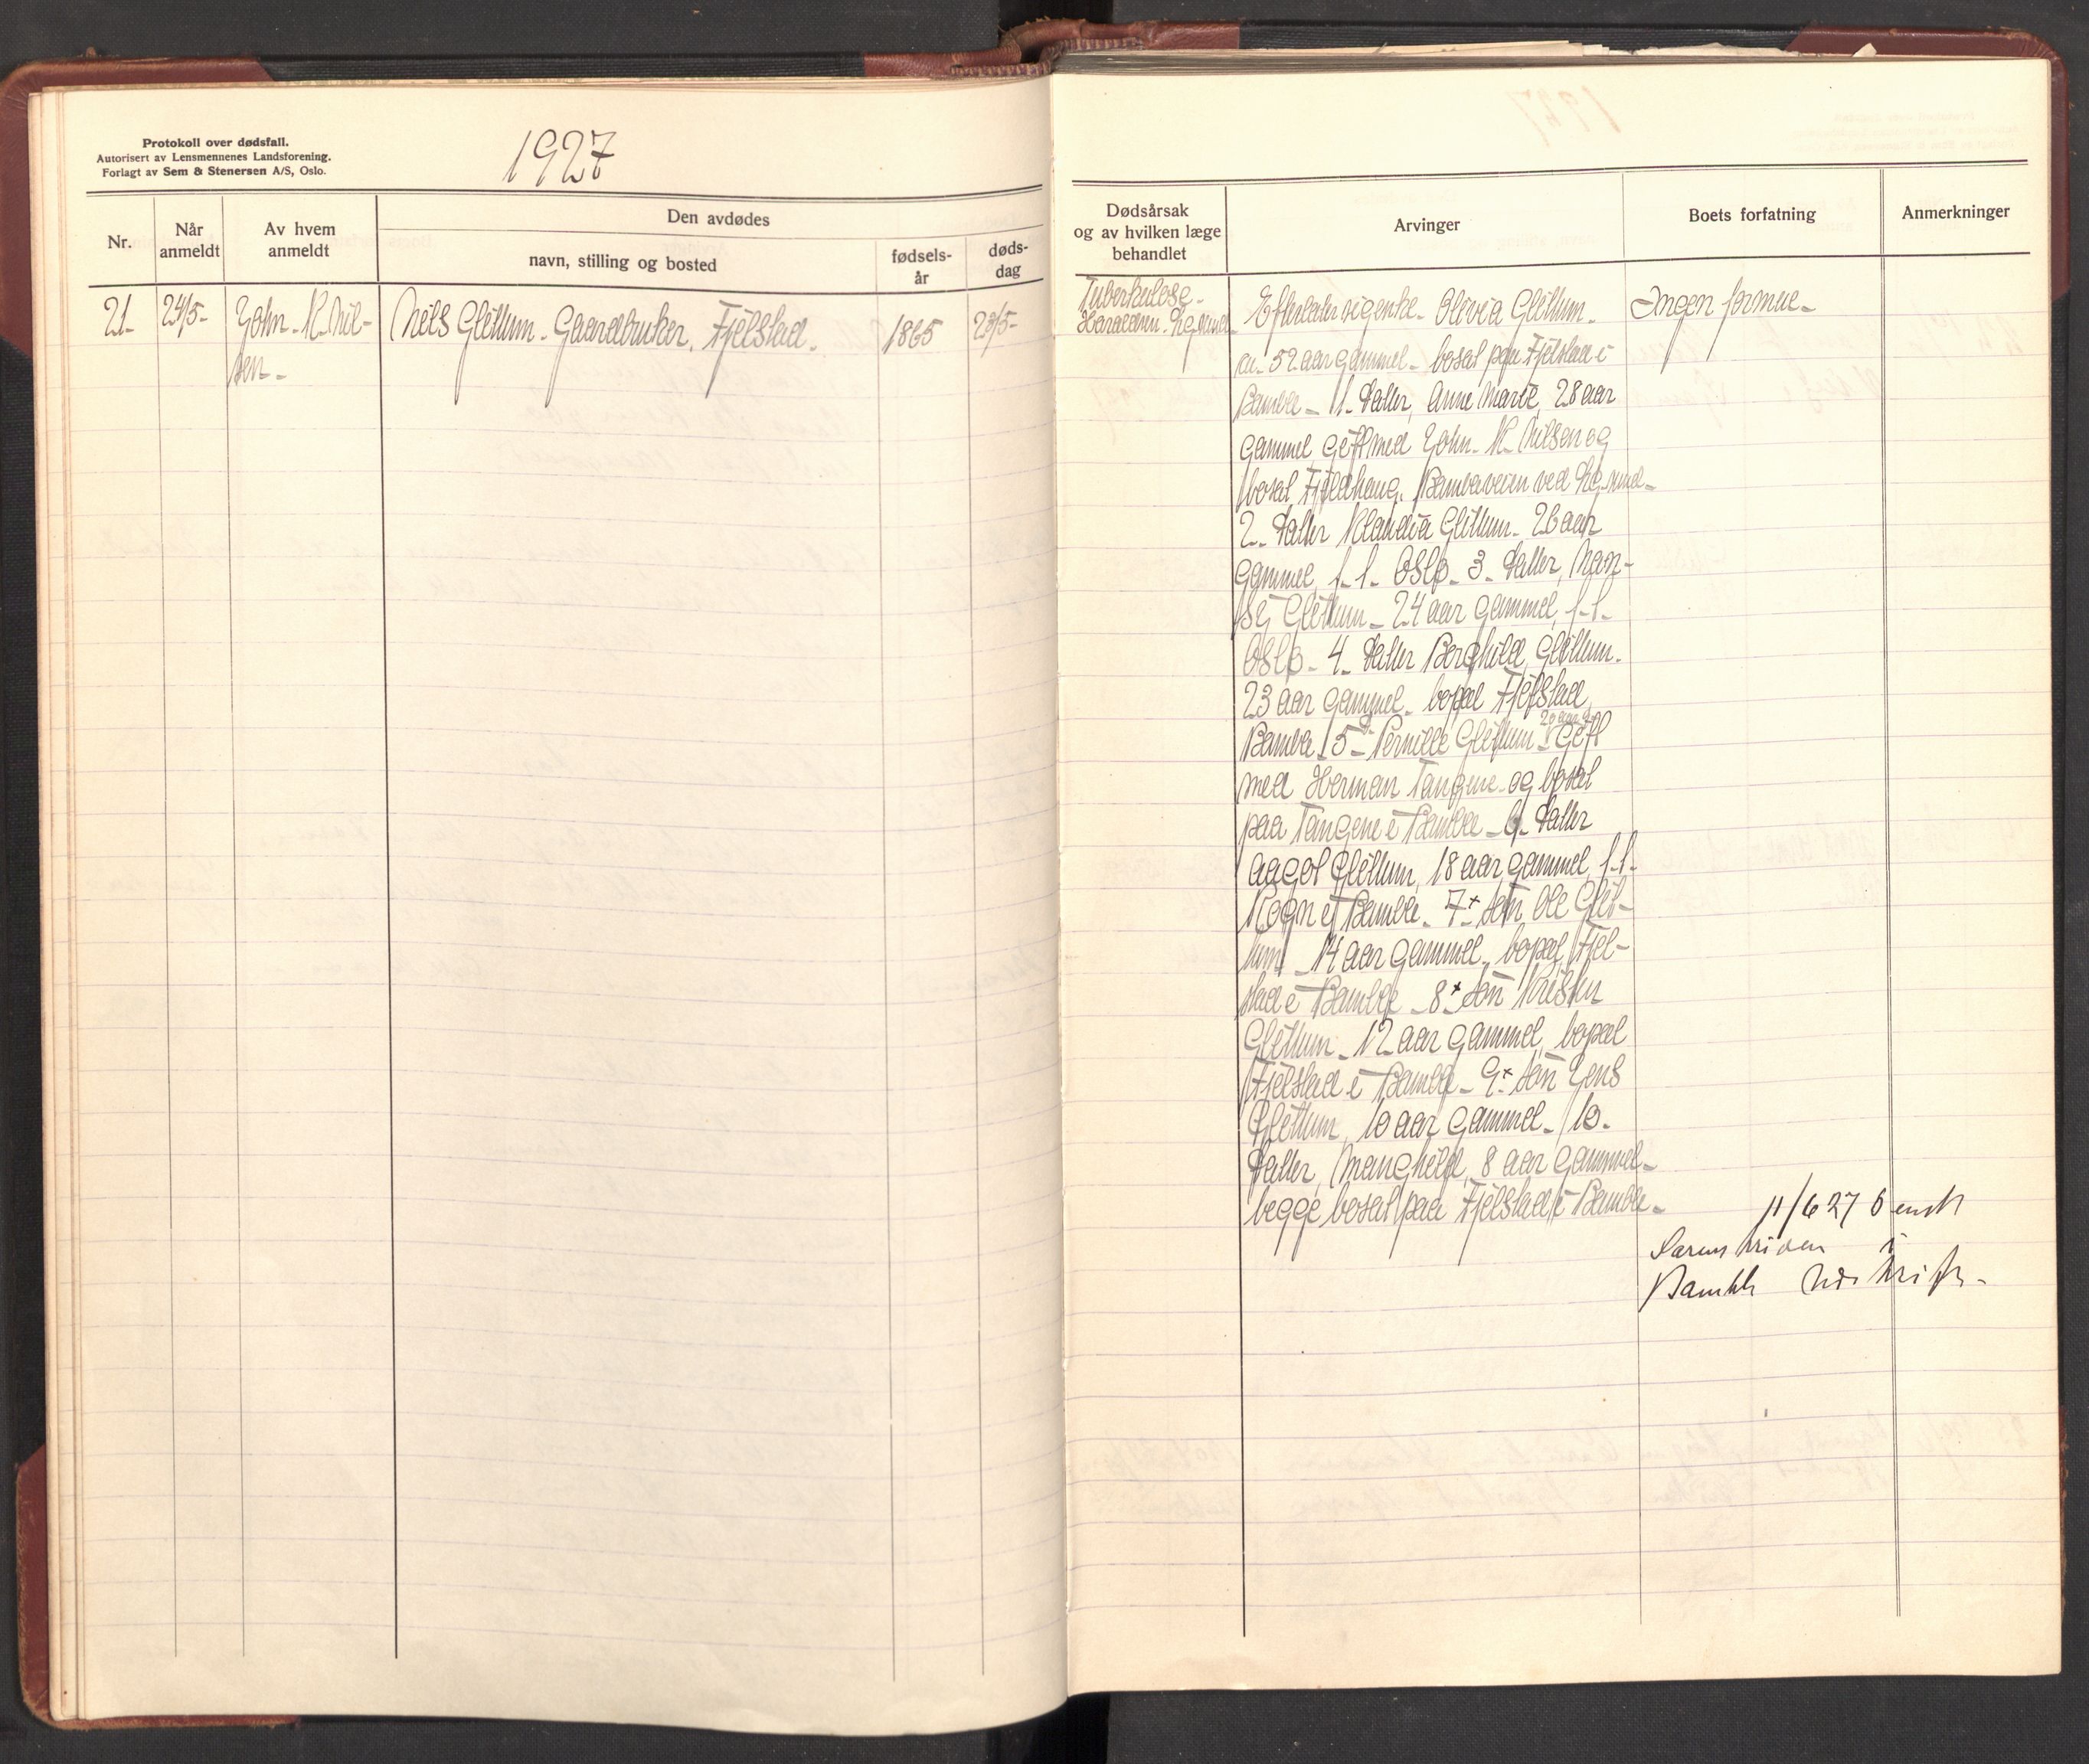 Protokoll over dødsfall.
Autorisert av Lensmennenes Landsforening.
Forlagt av Sem & Stenersen A/S, Oslo.
1927
Nr.
Når anmeldt
Av hvem anmeldt
Den avdødes
navn, stilling og bosted
fødsels-år
døds-dag
Dødsårsak
og av hvilken læge
behandlet
Arvinger
Boets forfatning
Anmerkninger
21. 24/5- John. K. Nil-
sen-.
Nils Glittum. Gaardbruker. Fjelstad.
1865
23/5-
Tuberkulose.
Haraldsen.
Efterlater sig enke. Olivia Glittum.
ca. 52 aar gammel. bosat paa Fjelstad i
Bamble. 1. Datter, Anne Marie, 28 aar
gammel, gift med John. K. Nilsen og
bosat Fjeldhaug. ved
2. Datter Klaudia Glittum. 26 aar
gammel, f. f. Oslo. 3. Datter, Nan-
sy Glittum. 24 aar gammel, f. f.
Oslo. 4. Datter Borghild Glittum.
23 aar gammel. bopæl Fjelstad,
Bamble. 5. Pernille Glittum. 20 aar g. gift
med Herman Tangene og bosat
paa Tangene i Bamble. 6. Datter
Aagot Glittum, 18 aar gammel, f. f.
Rogn i Bamble. 7.x Søn Ole Glit-
tum 14 aar gammel, bopæl Fjel-
stad i Bamble. 8.x Søn
Glittum. 12 aar gammel, bopæl
Fjelstad i Bamble. 9.x Søn Jens
Glittum, 10 aar gammel. 10.
Datter, Manghild, 8 aar gammel.
begge bosat paa Fjelstad i Bamble.
Ingen formue.
11/6 27 Sendt
Sorenskriven i
Bamble Utskrift.